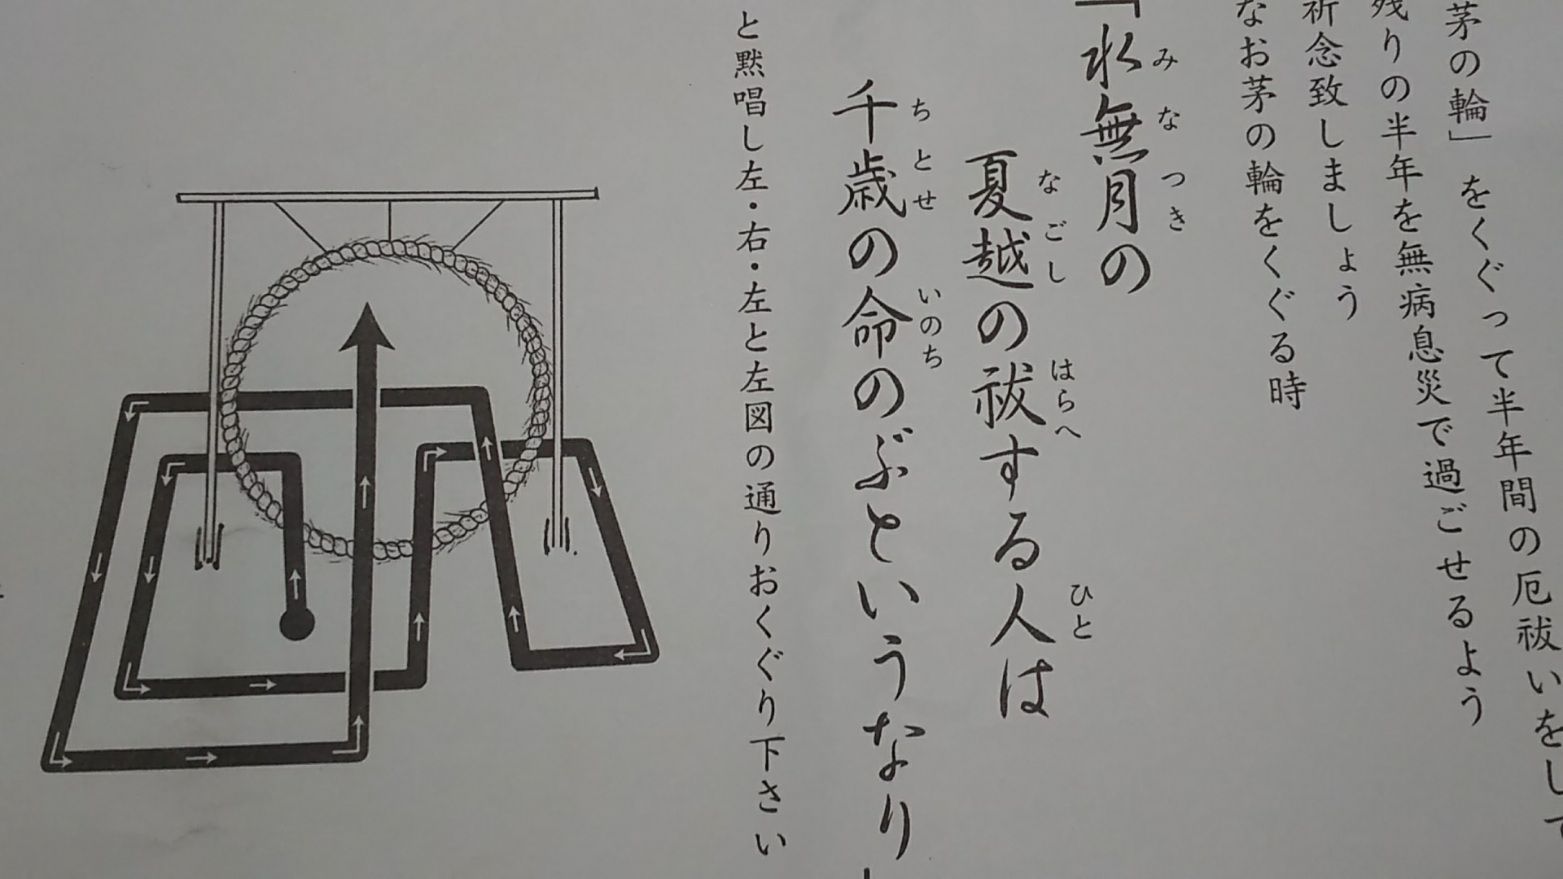 茅の輪」をくぐって半年間の厄祓いをして
残りの半年を無病息災で過ごせるよう
祈念致しましょう
なお茅の輪をくぐる時
「水無月の
みなつき
夏越の祓する人は
なごし はらへ ひと
千歳の命のぶというなり」
ちとせ いのち
と黙唱し左・右・左と左図の通りおくぐり下さい